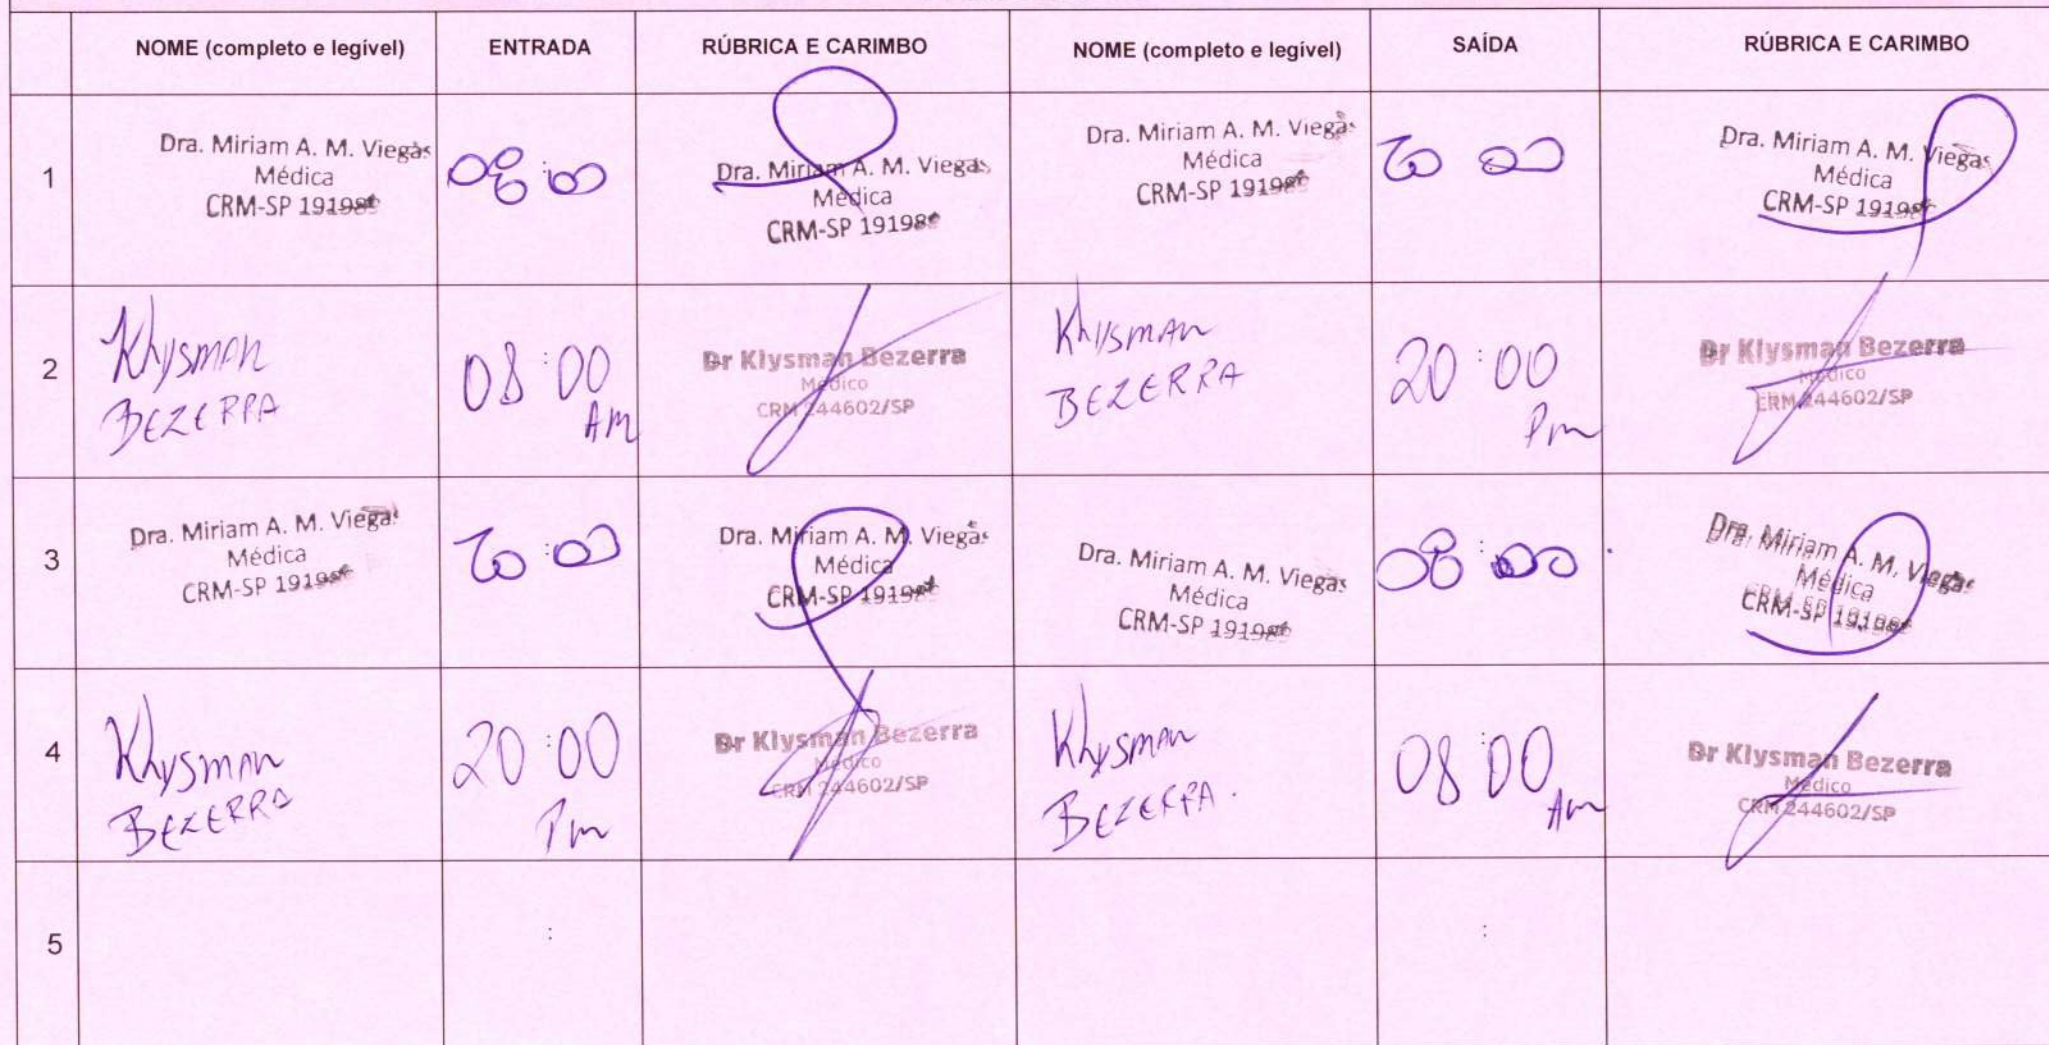 NOME (completo e legível) ENTRADA RÚBRICA E CARIMBO NOME (completo e legível) SAÍDA RÚBRICA E CARIMBO
1
Dra. Miriam A. M. Viegas
Médica
CRM-SP
08:00
Dra. Miriam A. M. Viegas
Médica
CRM-SP
Dra. Miriam A. M. Viegas
Médica
CRM-SP
20 00
Dra. Miriam A. M. Viegas
Médica
CRM-SP
2
Klysman
BEZERRA
08:00
Am
Dr Klysman Bezerra
Médico
CRM 244602/SP
Klysman
BEZERRA
20:00
Pm
Dr Klysman Bezerra
Médico
CRM 244602/SP
3
Dra. Miriam A. M. Viegas
Médica
CRM-SP
20:00
Dra. Miriam A. M. Viegas
Médica
CRM-SP
Dra. Miriam A. M. Viegas
Médica
CRM-SP
08:00
Dra. Miriam A. M. Viegas
Médica
CRM-SP
4
Klysman
BEZERRA
20:00
Pm
Dr Klysman Bezerra
Médico
CRM 244602/SP
Klysman
BEZERRA.
08:00
Am
Dr Klysman Bezerra
Médico
CRM 244602/SP
5
:
: